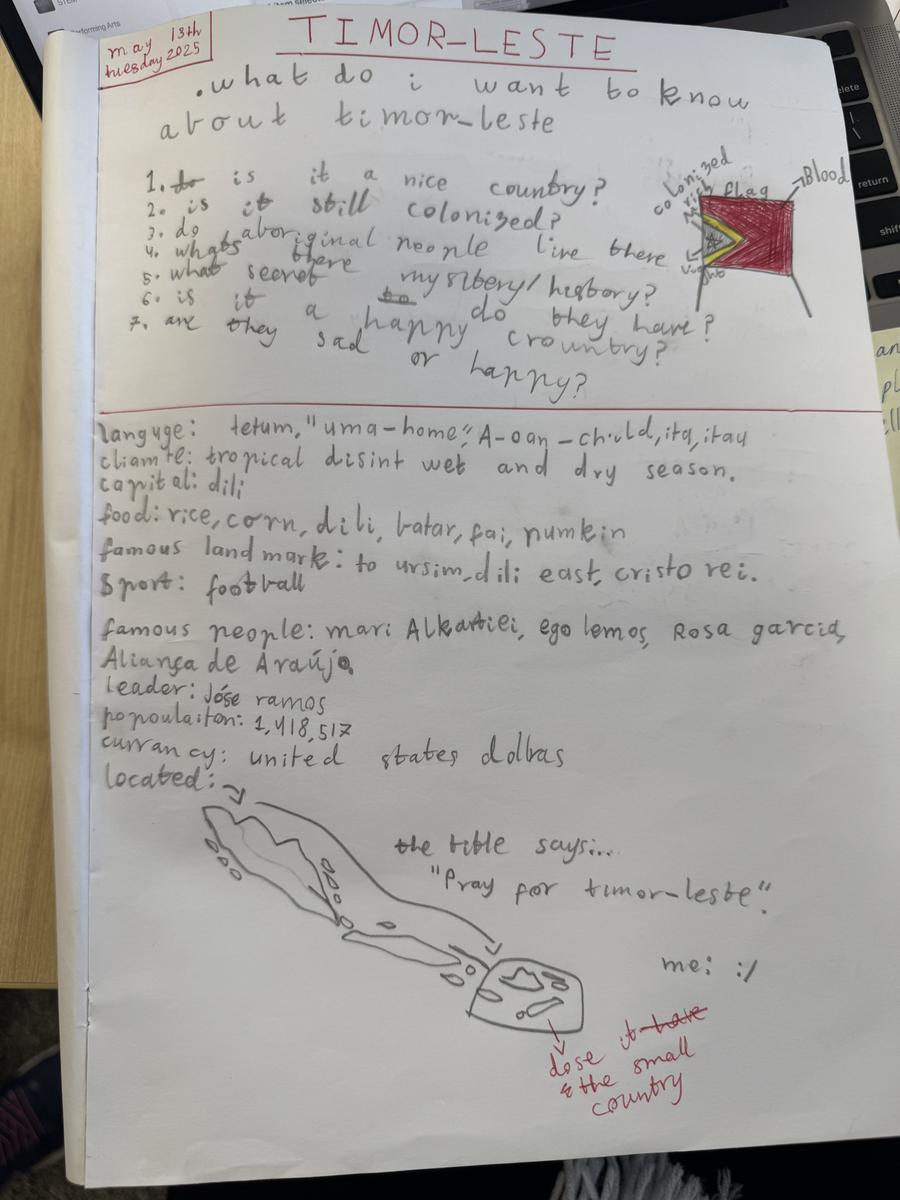 may 13th
tuesday 2025
TIMOR-LESTE
.what do i want to know
about timor-leste
1. do is it a nice country?
2. is it still colonized?
3. do aboriginal people live there
4. whats there
5. what secret mystery/history?
6. is it a to happy do they have?
7. are they sad crountry?
or happy?
colonized
rich
flag
Blood
languge: tetum, "uma-home", A-oan-child, ita, itau
cliamte: tropical disint wet and dry season.
capital: dili
food: rice, corn, dili, batar, fai, pumkin
famous land mark: to ursim, dili east, cristo rei.
Sport: football
famous people: mari Alkatiei, ego lemos, Rosa garcia,
Aliança de Araújo.
leader: Jóse ramos
popoulaiton: 1,418,517
currancy: united states dollras
located:
the bible says...
"Pray for timor-leste".
me: :/
dose it have
the small
country